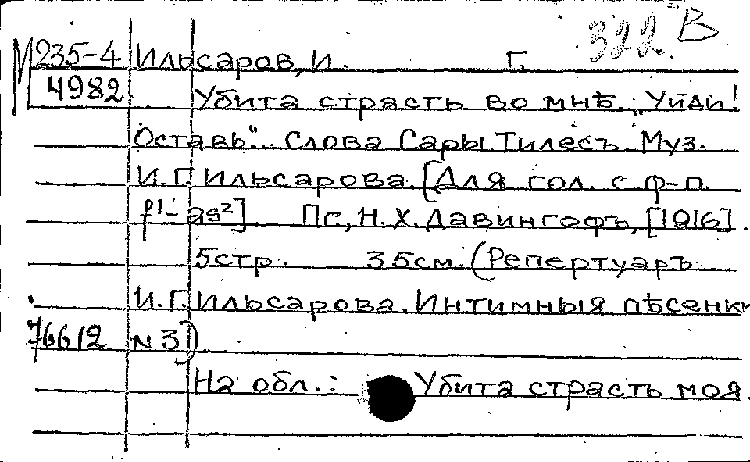 322. В
М 235-4 Ильсаров, И. Г.
4982 Убита страсть во мнѣ. „Уйди!
Оставь". Слова Сары Тилесъ. Муз.
И.Г. Ильсарова. [Для гол. с ф-п.
f¹-as²]. Пг., Н.Х. Давингофъ, [1916].
5стр. 35см. (Репертуаръ
И.Г. Ильсарова. Интимныя пѣсенки
76612 N3)
На обл.: Убита страсть моя.